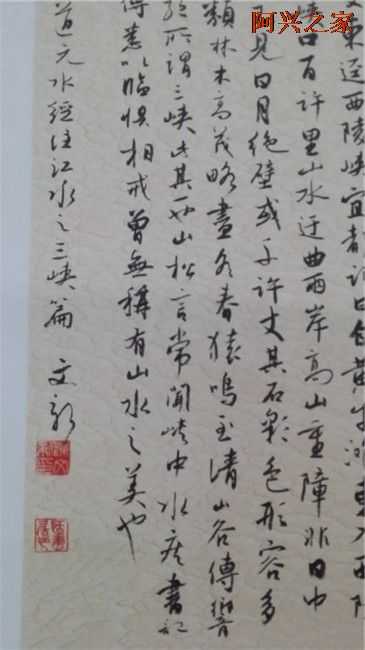 阿兴之家
東逕西陵峽宜都記曰自黃牛灘東入西陵
峽口百許里山水迂曲兩岸高山重障非日中
見日月絶壁或千許丈其石彩色形容多
類林木高茂略盡冬春猿鳴至清山谷傳響
絶所謂三峽此其一也山松言常聞峽中水疾書記
傳悉以臨懼相戒曾無稱有山水之美也
道元水經注江水之三峽篇 文